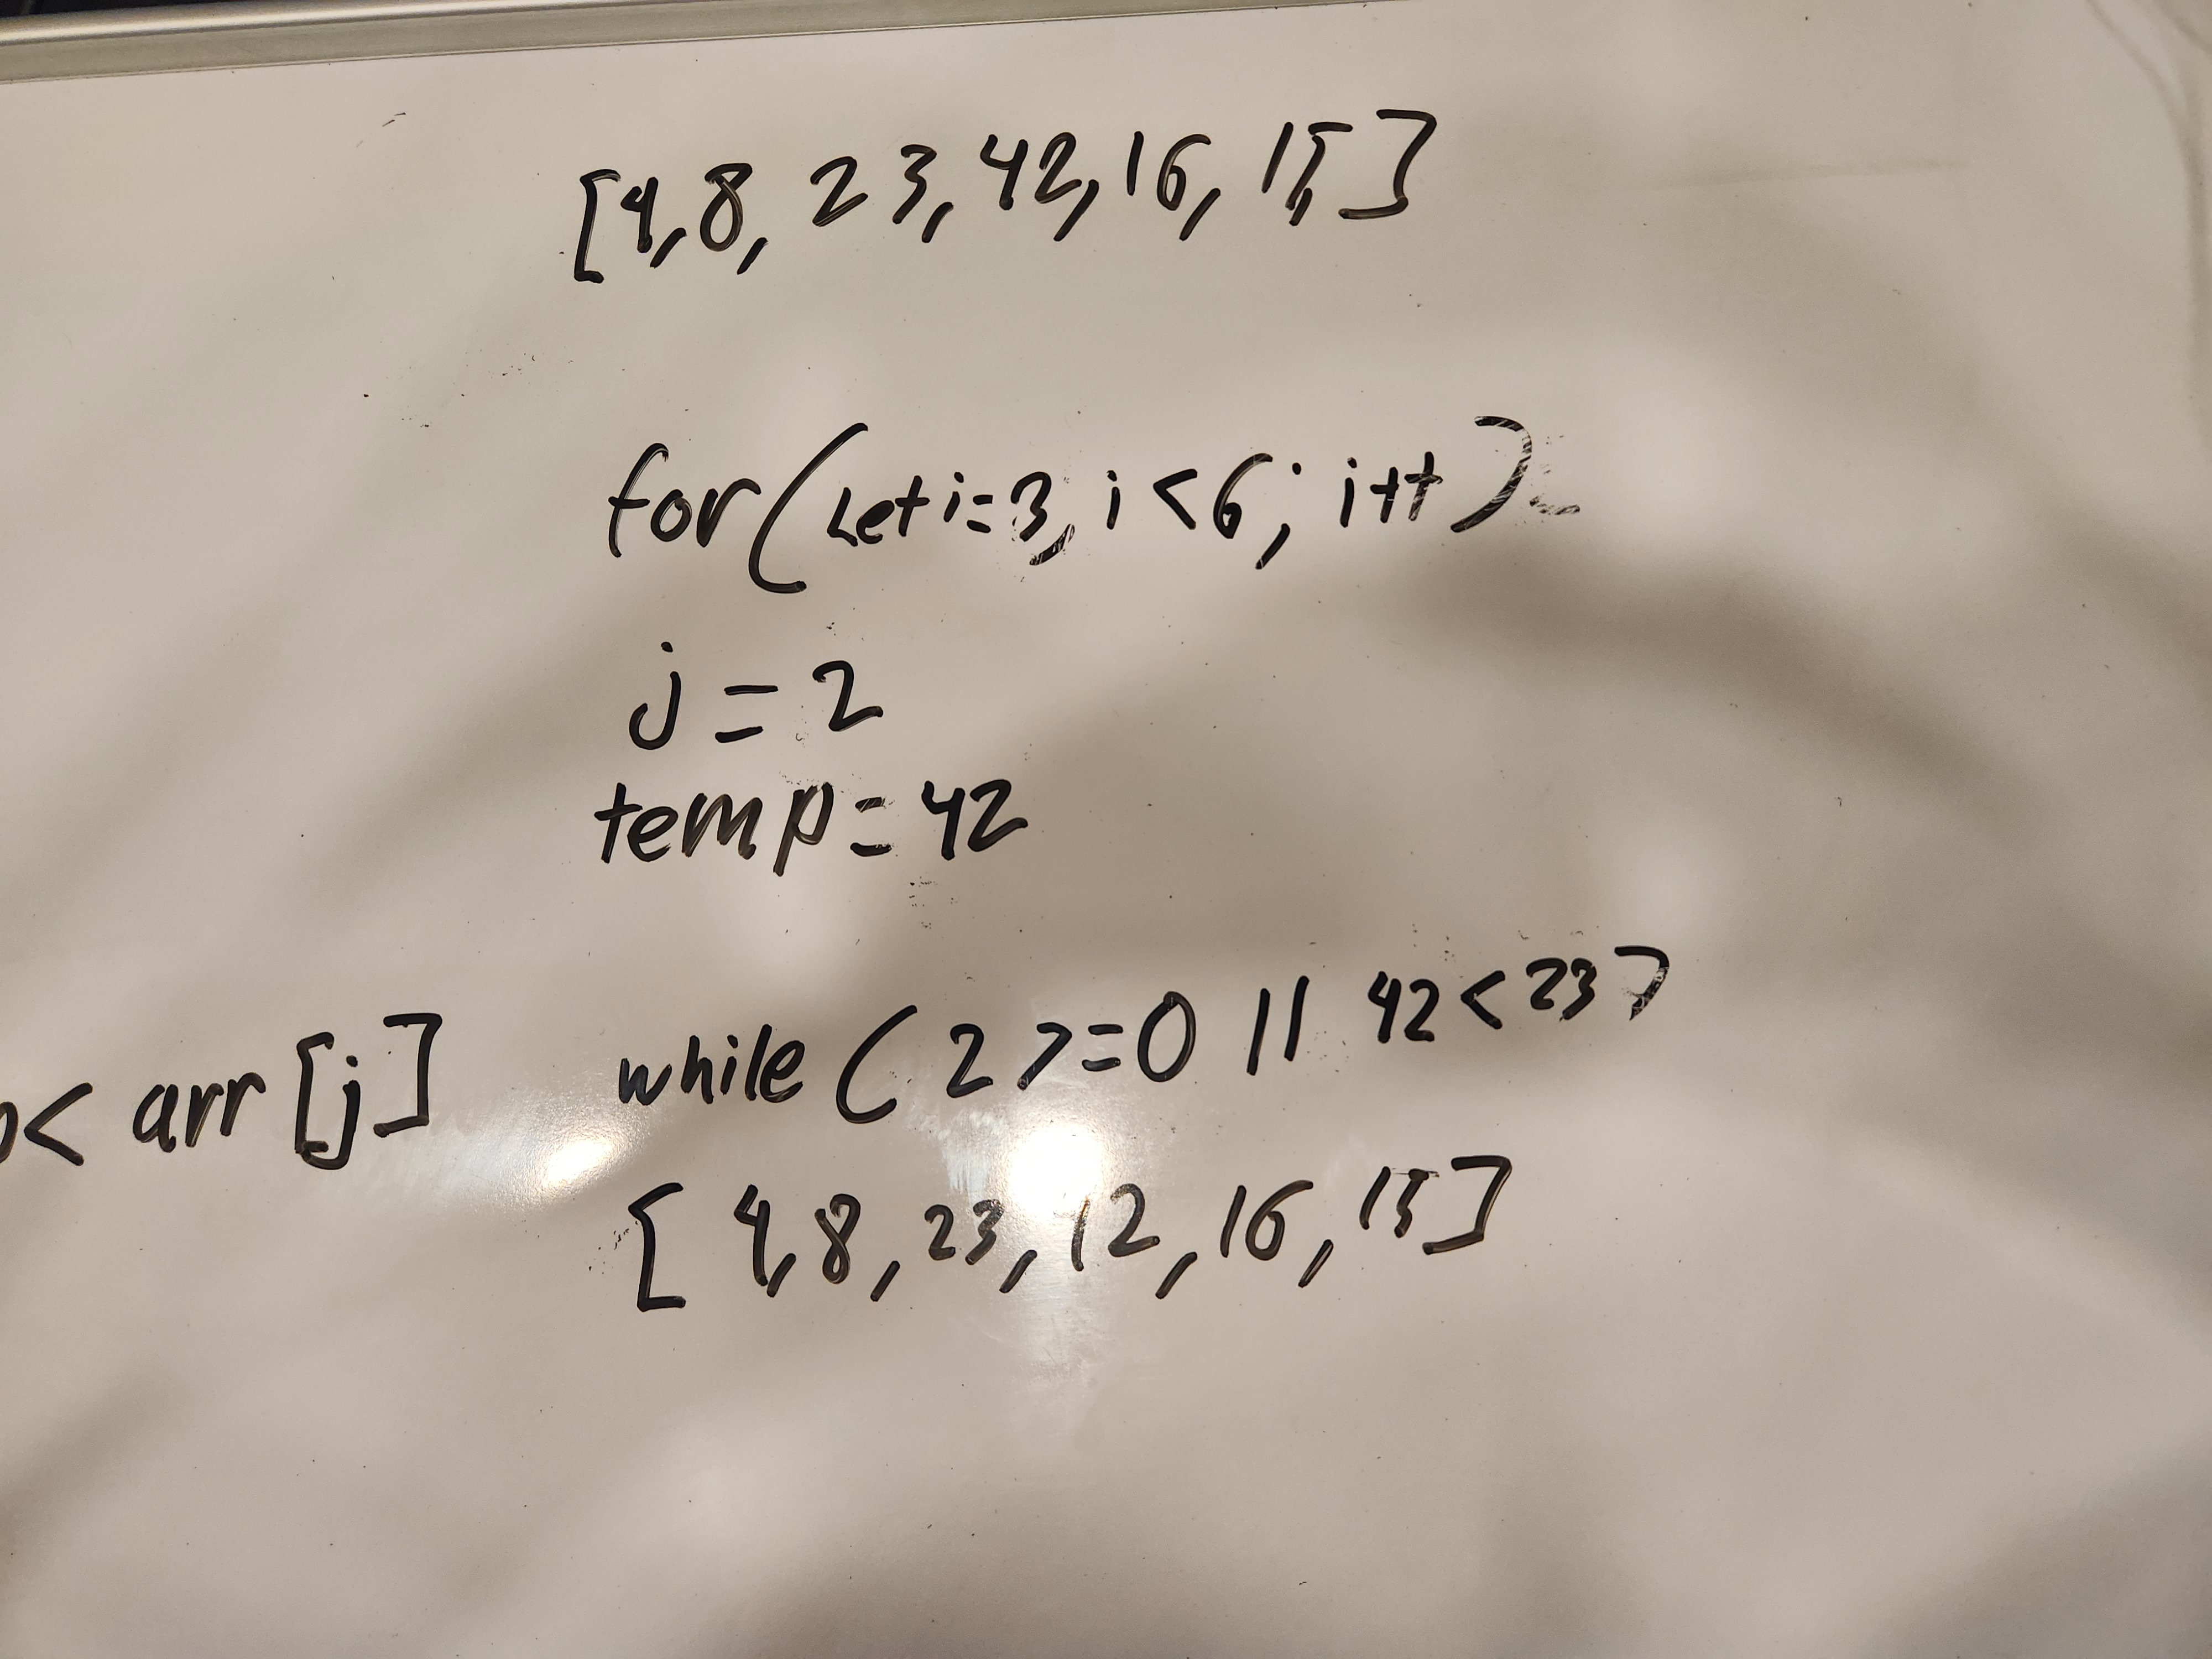 [4, 8, 23, 42, 16, 15]
for(let i=3, i<6, i++)
j=2
temp=42
< arr[j]
while (2 >=0 || 42<23)
[4, 8, 23, 12, 16, 15]